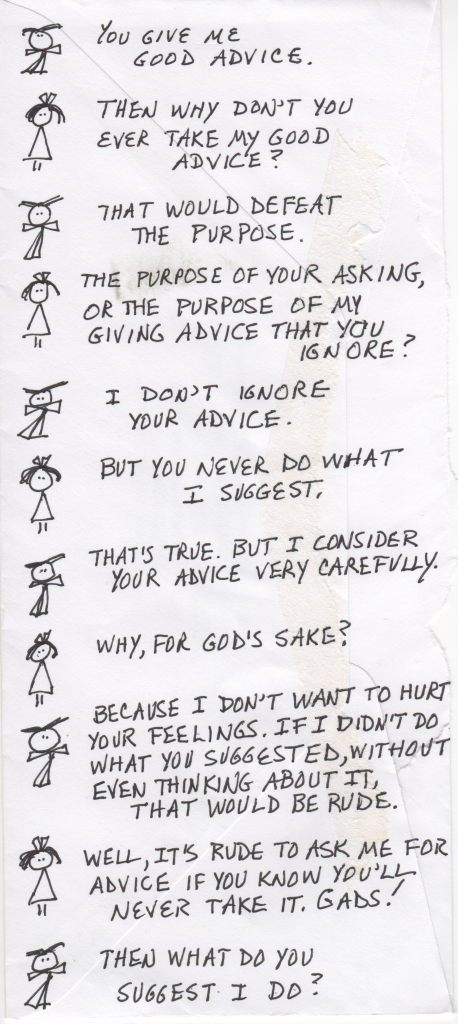 YOU GIVE ME
GOOD ADVICE.
THEN WHY DON'T YOU
EVER TAKE MY GOOD
ADVICE?
THAT WOULD DEFEAT
THE PURPOSE.
THE PURPOSE OF YOUR ASKING,
OR THE PURPOSE OF MY
GIVING ADVICE THAT YOU
IGNORE?
I DON'T IGNORE
YOUR ADVICE.
BUT YOU NEVER DO WHAT
I SUGGEST.
THAT'S TRUE. BUT I CONSIDER
YOUR ADVICE VERY CAREFULLY.
WHY, FOR GOD'S SAKE?
BECAUSE I DON'T WANT TO HURT
YOUR FEELINGS. IF I DIDN'T DO
WHAT YOU SUGGESTED, WITHOUT
EVEN THINKING ABOUT IT,
THAT WOULD BE RUDE.
WELL, IT'S RUDE TO ASK ME FOR
ADVICE IF YOU KNOW YOU'LL
NEVER TAKE IT. GADS!
THEN WHAT DO YOU
SUGGEST I DO?